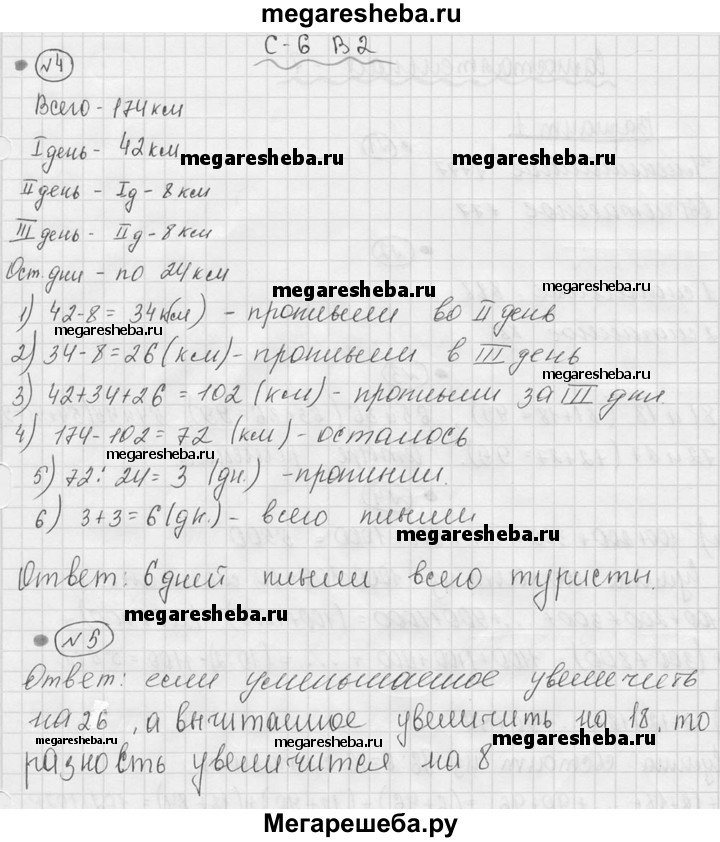 megaresheba.ru
С-6 В2
№4
Всего - 174 км
I день - 42 км
megaresheba.ru megaresheba.ru
II день - Iд - 8 км
III день - IIд - 8 км
Ост. дни - по 24 км
megaresheba.ru megaresheba.ru
1) 42-8= 34 (км) - проплыли во II день
megaresheba.ru
2) 34-8=26 (км) - проплыли в III день
megaresheba.ru
3) 42+34+26 = 102 (км) - проплыли за III дни.
4) 174-102=72 (км) - осталось
megaresheba.ru
5) 72: 24= 3 (дн.)
6) 3+3=6 (дн.) - всего плыли
megaresheba.ru
Ответ: 6 дней плыли всего туристы.
megaresheba.ru
№5
Ответ: если уменьшаемое увеличить
на 26, а вычитаемое увеличить на 18, то
megaresheba.ru megaresheba.ru megaresheba.ru
разность увеличится на 8
Мегарешеба.ру